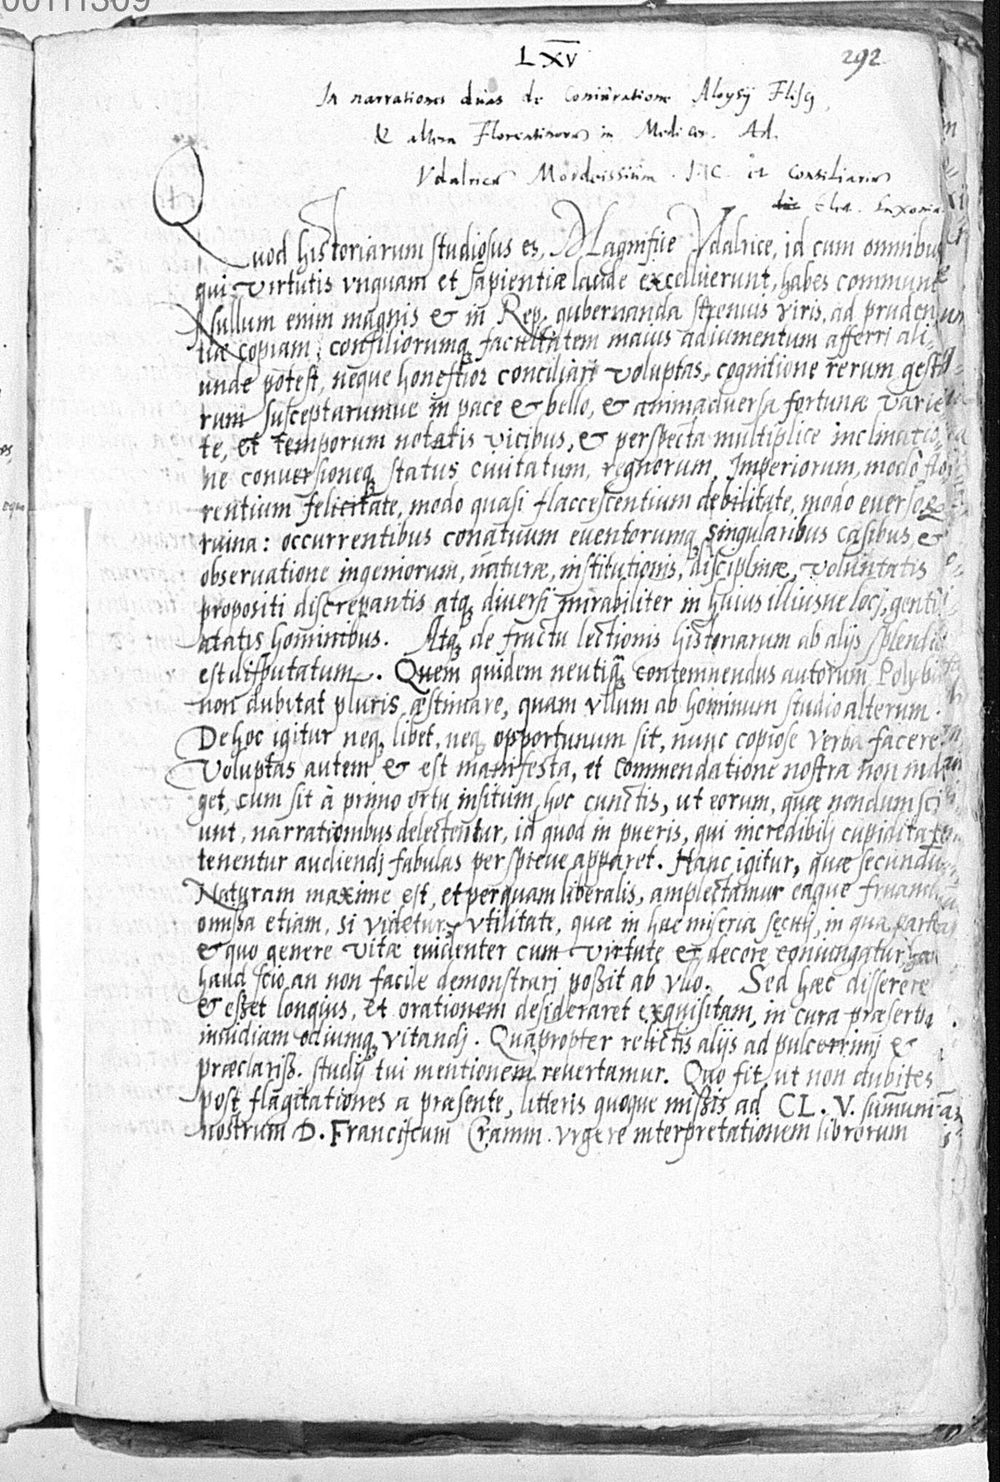 00111309
LXV
292
In narrationes duas de Coniuratione Aloysij Flisci,
& altera Florentinorum in Medices. Ad.
Vdalricum Mordeissium. I.C. et Consiliarium
Elect. Saxoniae
Quod historiarum studiosus es, Magnifice Vdalrice, id cum omnibus
qui virtutis vnquam et sapientiæ laude excelluerunt, habes commune
Nullum enim magnis & in Rep. gubernanda strenuis viris, ad pruden
tiæ copiam, consiliorumq; facultatem maius adiumentum afferri ali-
unde potest, neque honestior conciliari voluptas, cognitione rerum gesta
rum susceptarumue in pace & bello, & animaduersa fortunæ varie
te, et temporum notatis vicibus, & perspecta multiplice inclinatio
ne conversioneq; status ciuitatum, regnorum, Imperiorum, modo flo
rentium felicitate, modo quasi flaccescentium debilitate, modo euerso
ruina: occurrentibus conatuum euentorumq; singularibus casibus, &
observatione ingeniorum, naturæ, institutionis, disciplinæ, voluntatis
propositi discrepantis atq; diuersi mirabiliter in huius illiusue loci, genti
ætatis hominibus. Atq; de fructu lectionis historiarum ab alijs splendide
est disputatum. Quem quidem neutiq; contemnendus autorum Polybius
non dubitat pluris æstimare, quam vllum ab hominum studio alterum.
De hoc igitur neq; libet, neq; opportunum sit, nunc copiose verba facere.
Voluptas autem & est manifesta, et commendatione nostra non indi
get, cum sit à primo ortu insitum hoc cunctis, ut eorum, quæ nondum sci
unt, narrationibus delectentur, id quod in pueris, qui incredibili cupiditate
tenentur audiendi fabulas perspicue apparet. Hanc igitur, quæ secundum
Naturam maxime est, et perquam liberalis, amplectamur eaque fruamur
omissa etiam, si videtur, vtilitate, quæ in hac miseria seculi, in qua parte
& quo genere vitæ euidenter cum virtute & decore coniungatur
haud scio an non facile demonstrari possit ab vllo. Sed hæc disserere
& esset longius, et orationem desideraret exquisitam, in cura præsertim
inuidiam odiumq; vitandi. Quapropter relictis alijs ad pulcerrimi &
præclariss. studij tui mentionem reuertamur. Quo fit, ut non dubites
post flagitationes a præsente, litteris quoque missis ad CL. V. summum
nostrum D. Franciscum Cramm. vrgere interpretationem librorum